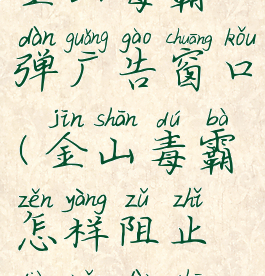 dàn guǎng gào chuāng kǒu
弹广告窗口
jīn shān dú bà
(金山毒霸
zěn yàng zǔ zhǐ
怎样阻止